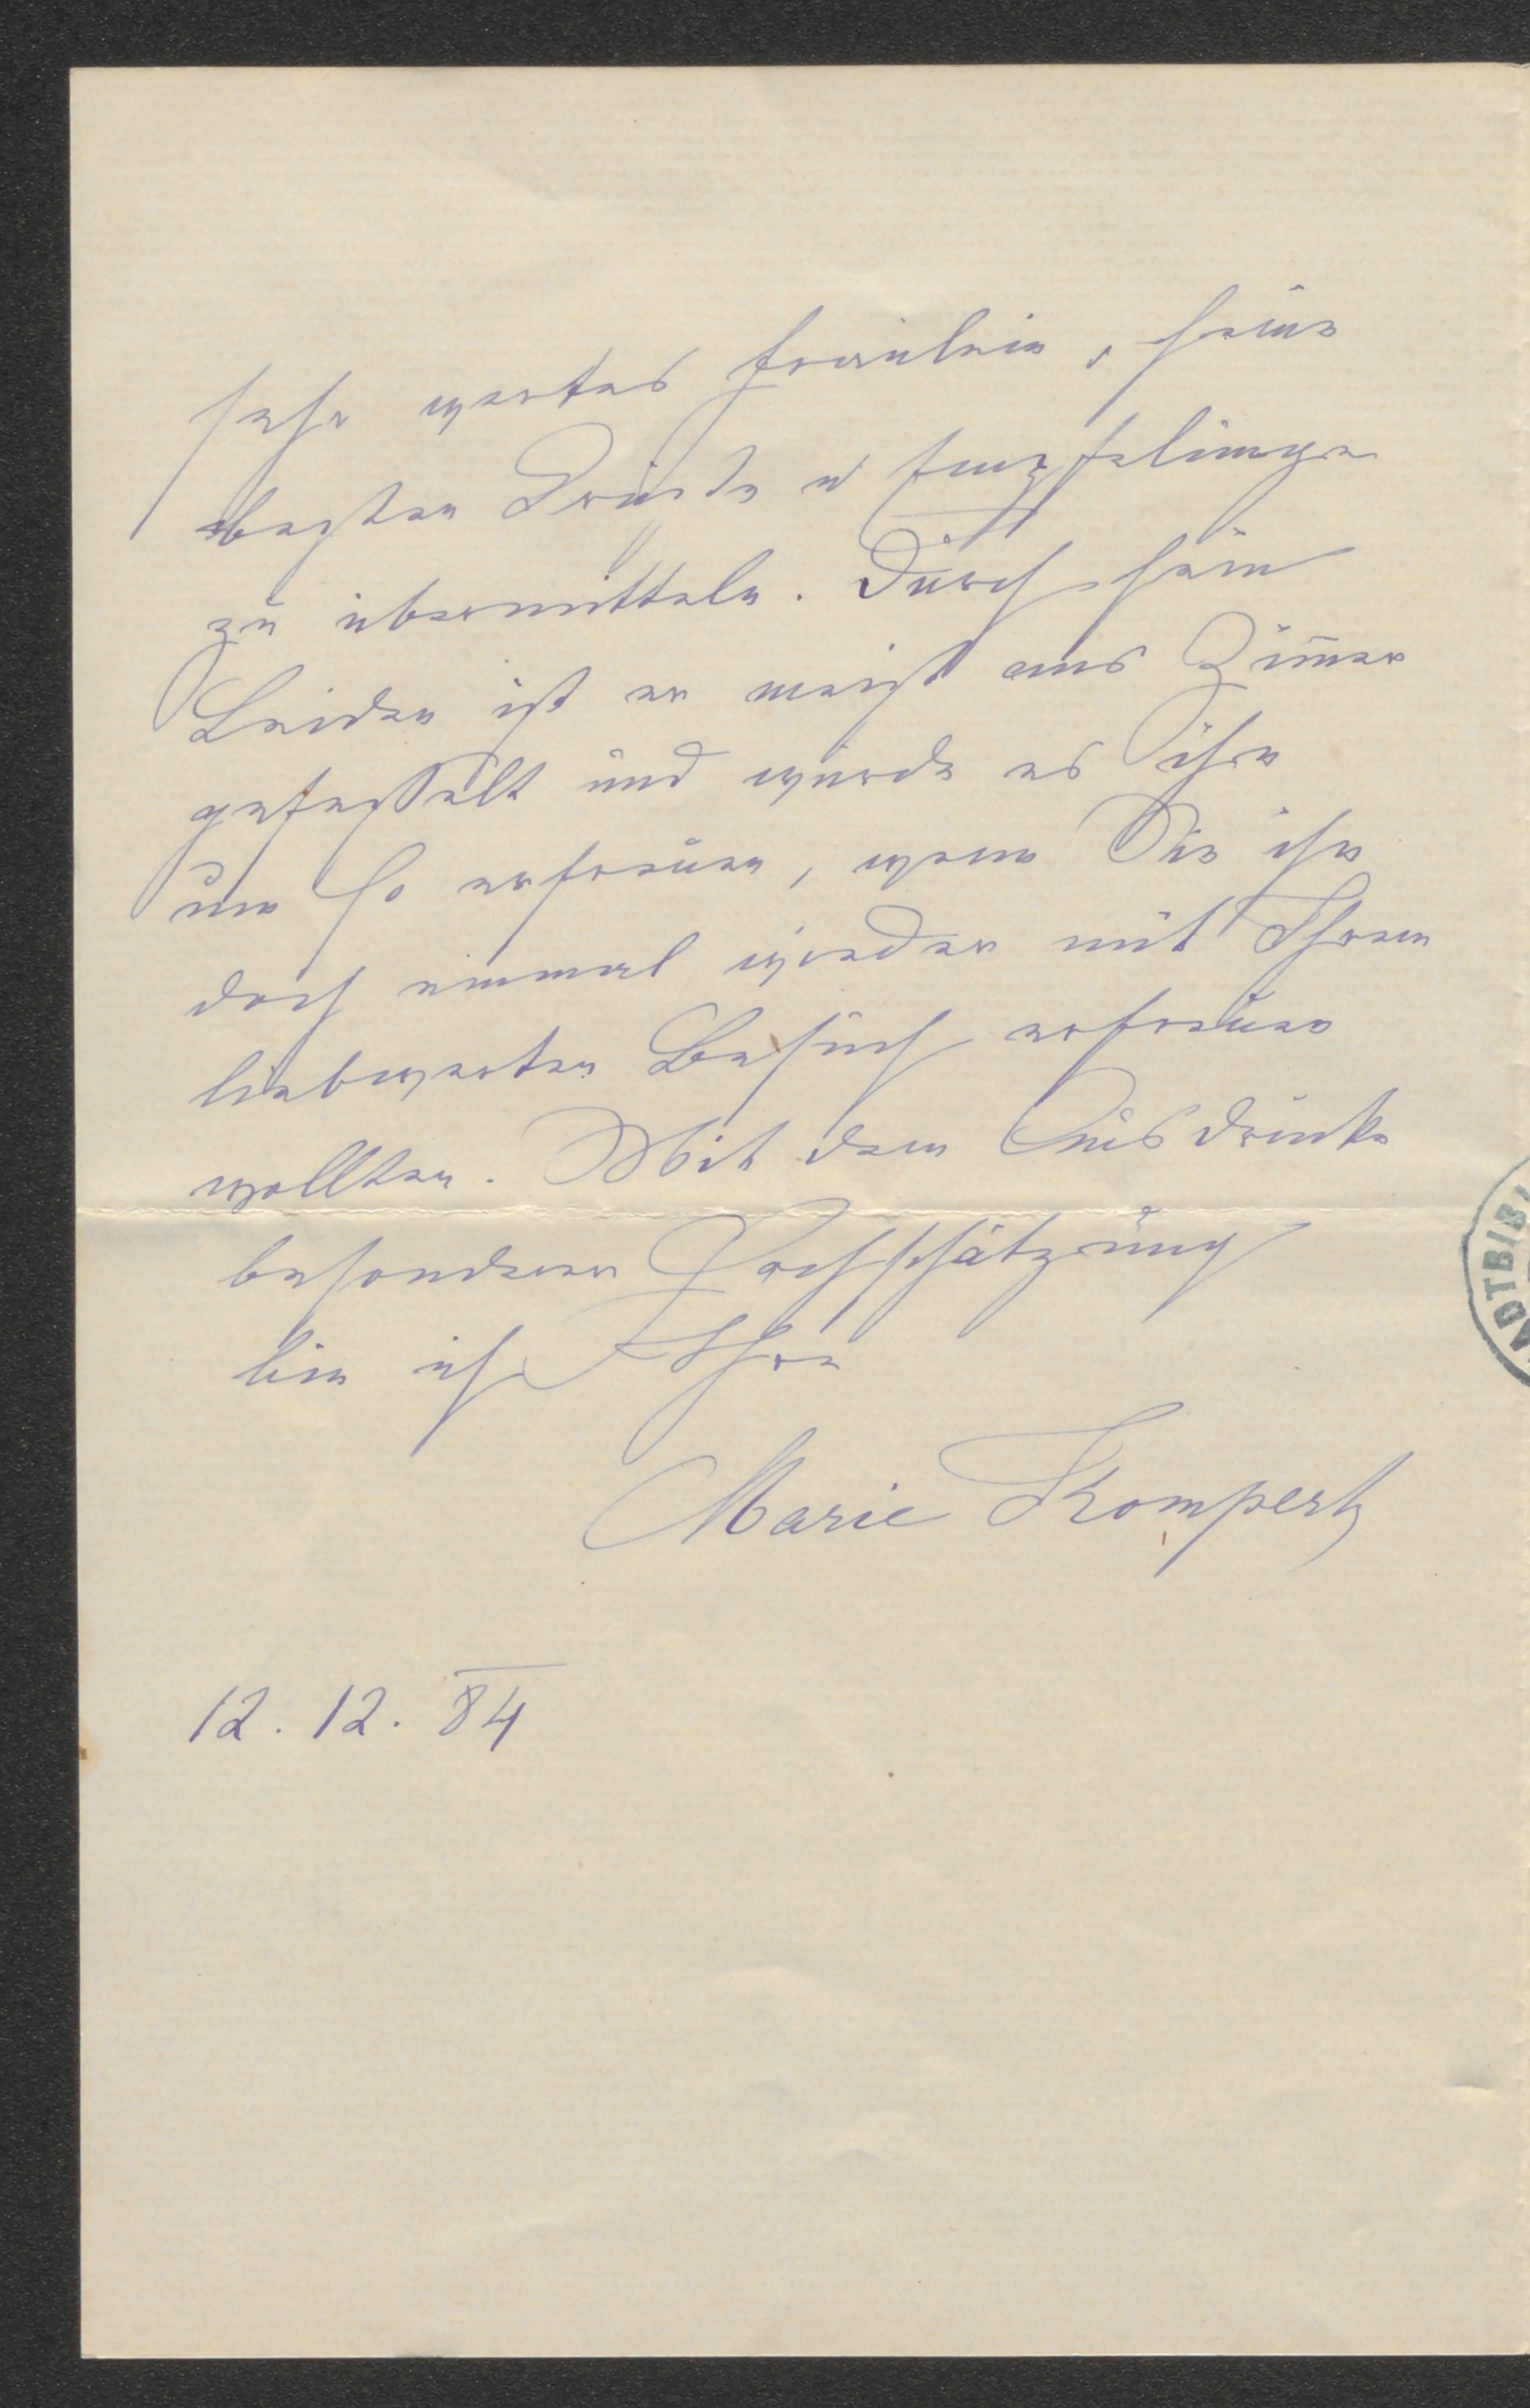 sehr wertes Fräulein, seine
besten Grüsse u Empfelungen
zu übermitteln. Durch sein
Leiden ist er meist ans Zim̄er
gefesselt und würde es ihn
um so erfreuen, wenn Sie ihn
doch einmal wieder mit Ihrem
liebwerten Besuch erfreuen
wollten. Mit dem Ausdrucke
besonderer Hochschätzung
bin ich Ihre
Marie Kompert
12. 12. 84
ADTBIBL